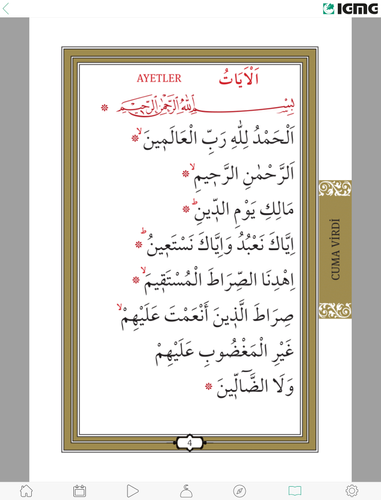 IGMG
AYETLER
اَلْاٰيَاتُ
بِسْــــمِ اللّٰهِ الرَّحْمٰنِ الرَّحِيمِ
اَلْحَمْدُ لِلّٰهِ رَبِّ الْعَالَمِينَۙ
اَلرَّحْمٰنِ الرَّحِيمِۙ
مَالِكِ يَوْمِ الدِّينِۜ
اِيَّاكَ نَعْبُدُ وَاِيَّاكَ نَسْتَعِينُۜ
اِهْدِنَا الصِّرَاطَ الْمُسْتَقِيمَۙ
صِرَاطَ الَّذِينَ أَنْعَمْتَ عَلَيْهِمْۙ
غَيْرِ الْمَغْضُوبِ عَلَيْهِمْ
وَلَا الضَّٓالِّينَ
CUMA VİRDİ
4